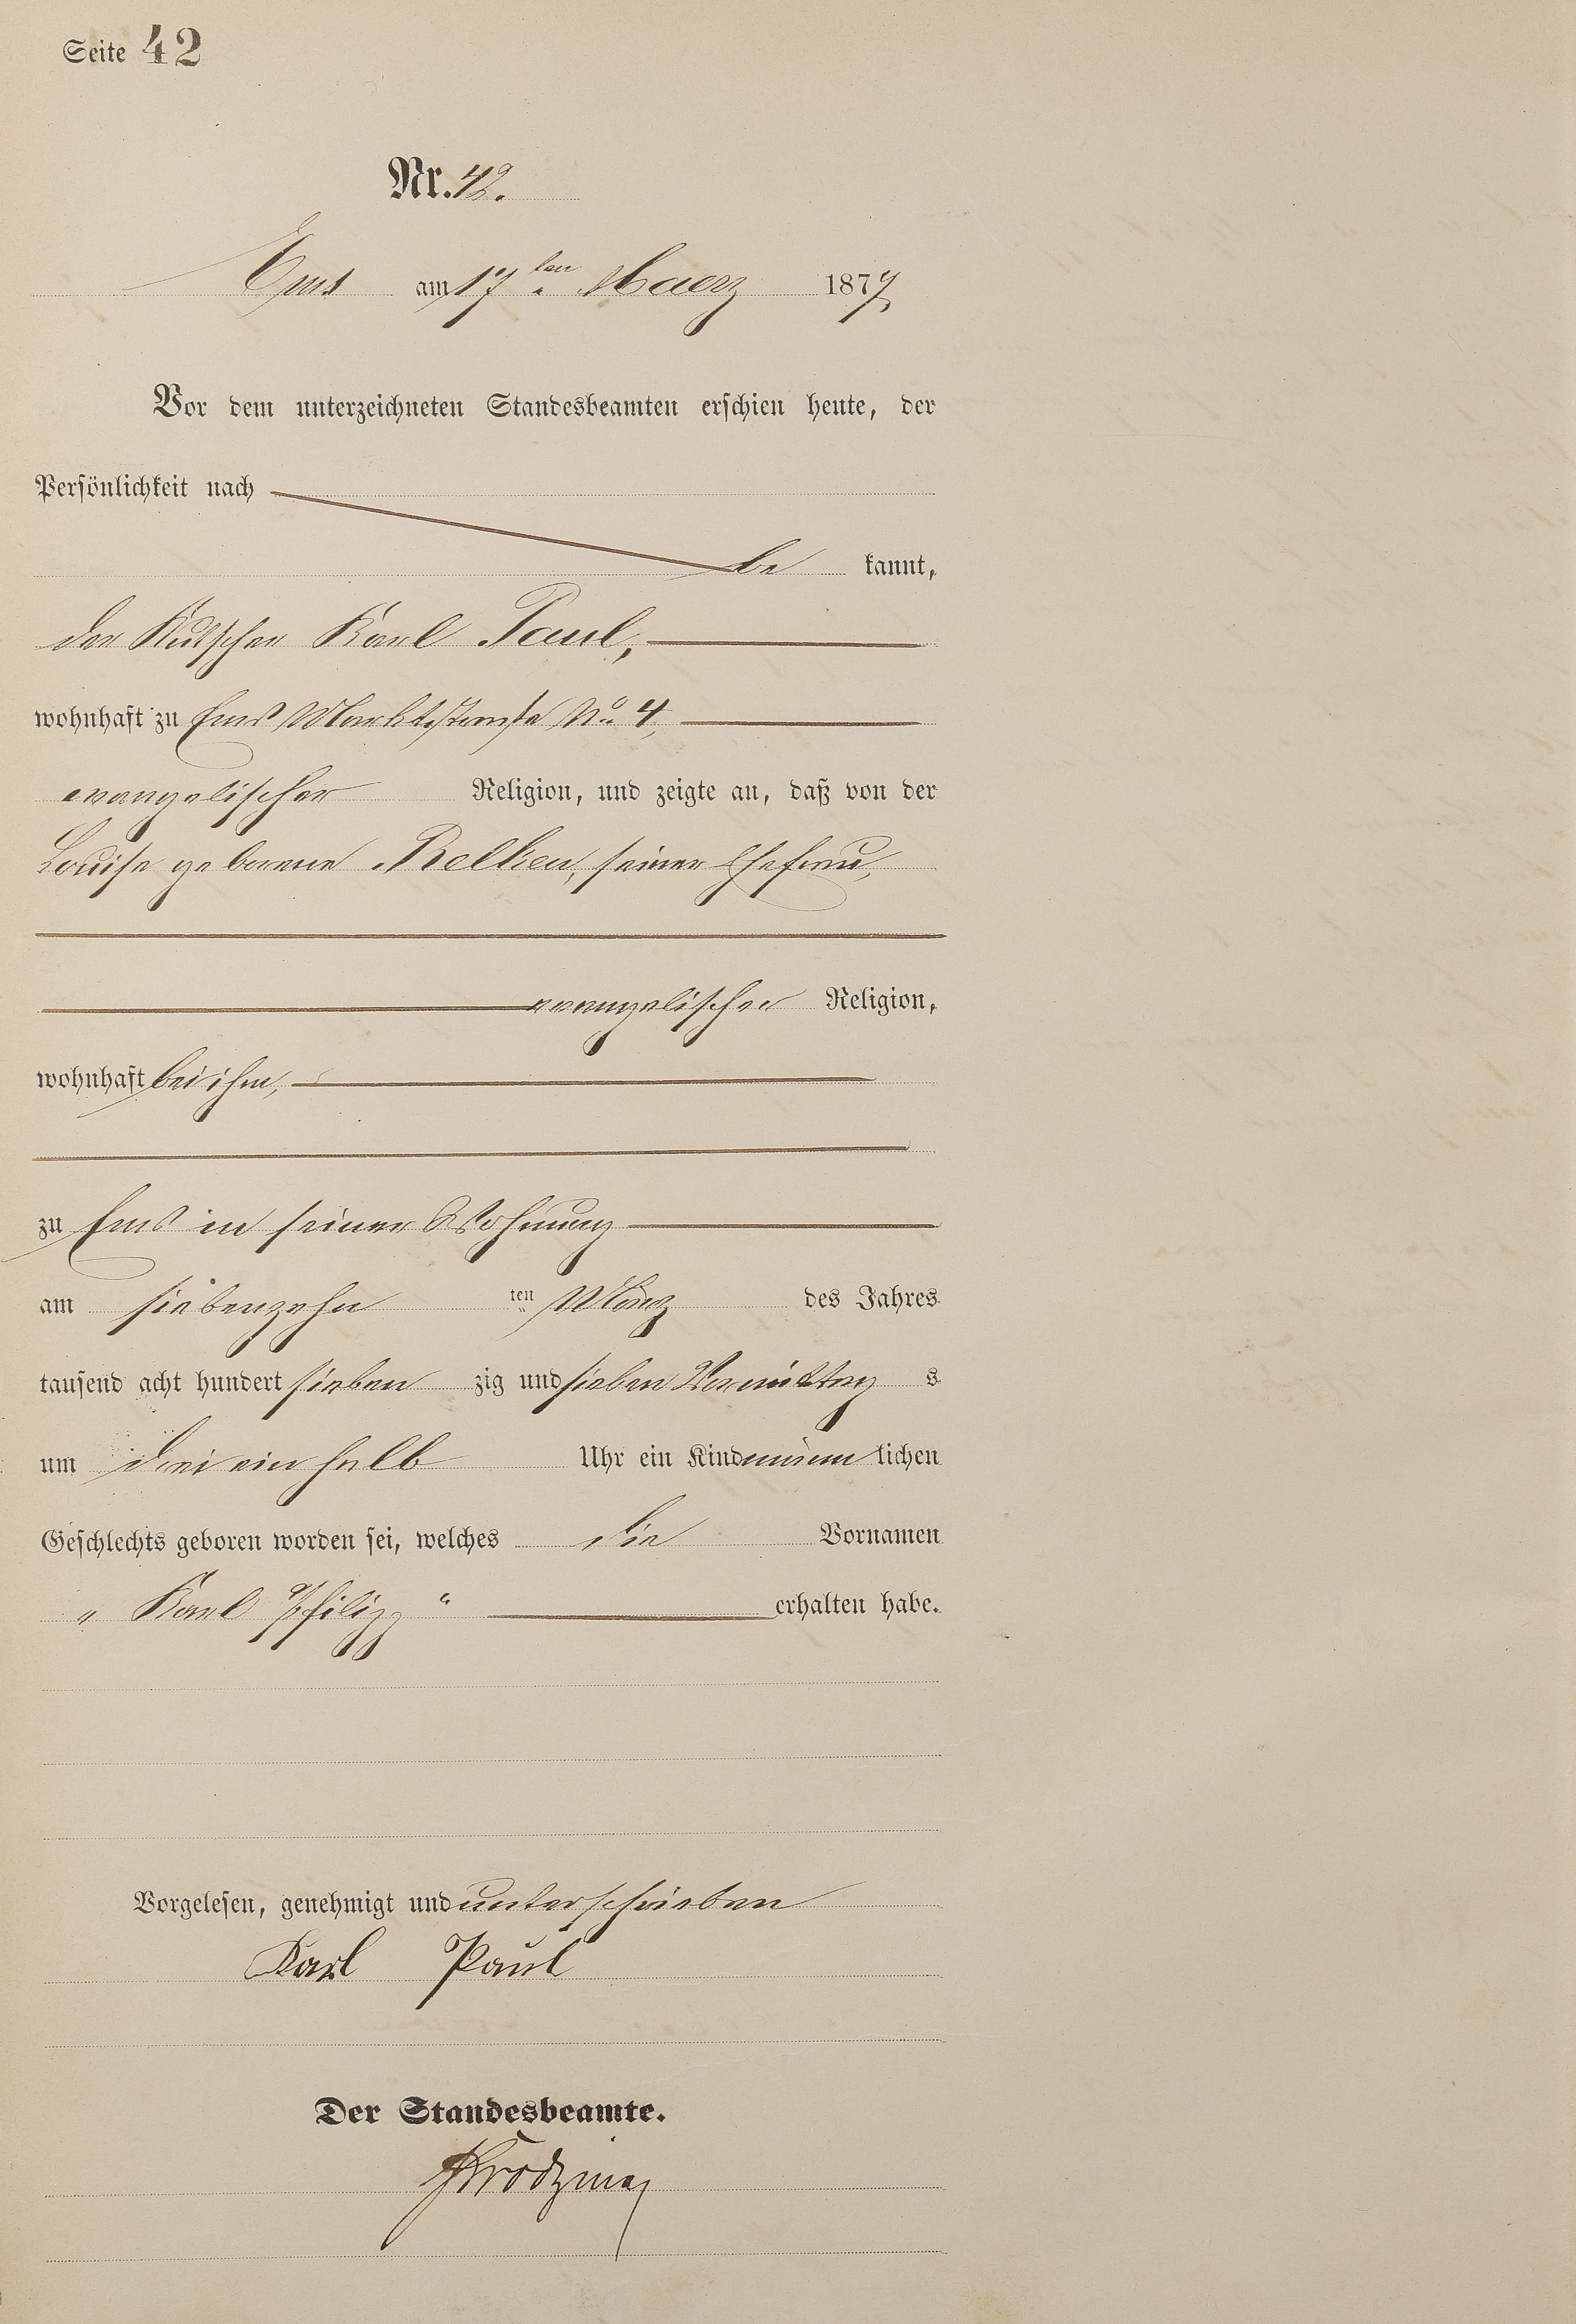 Seite 42
Nr. 42.
Ems am 17ten Maerz 1877
Vor dem unterzeichneten Standesbeamten erschien heute, der
Persönlichkeit nach
be kannt,
der Kutscher Karl Paul,
wohnhaft zu Ems Marktstraße No 4,
evangelischer Religion, und zeigte an, daß von der
Louise geborene Relken, seiner Ehefrau,
evangelischer Religion,
wohnhaft bei ihm,
zu Ems in seiner Wohnung
am siebenzehn ten März des Jahres
tausend acht hundert sieben zig und sieben Vormittag s
um drei ein halb Uhr ein Kind männ lichen
Geschlechts geboren worden sei, welches die Vornamen
„ Karl Philipp “ erhalten habe.
Vorgelesen, genehmigt und unterschrieben
Karl Paul
Der Standesbeamte.